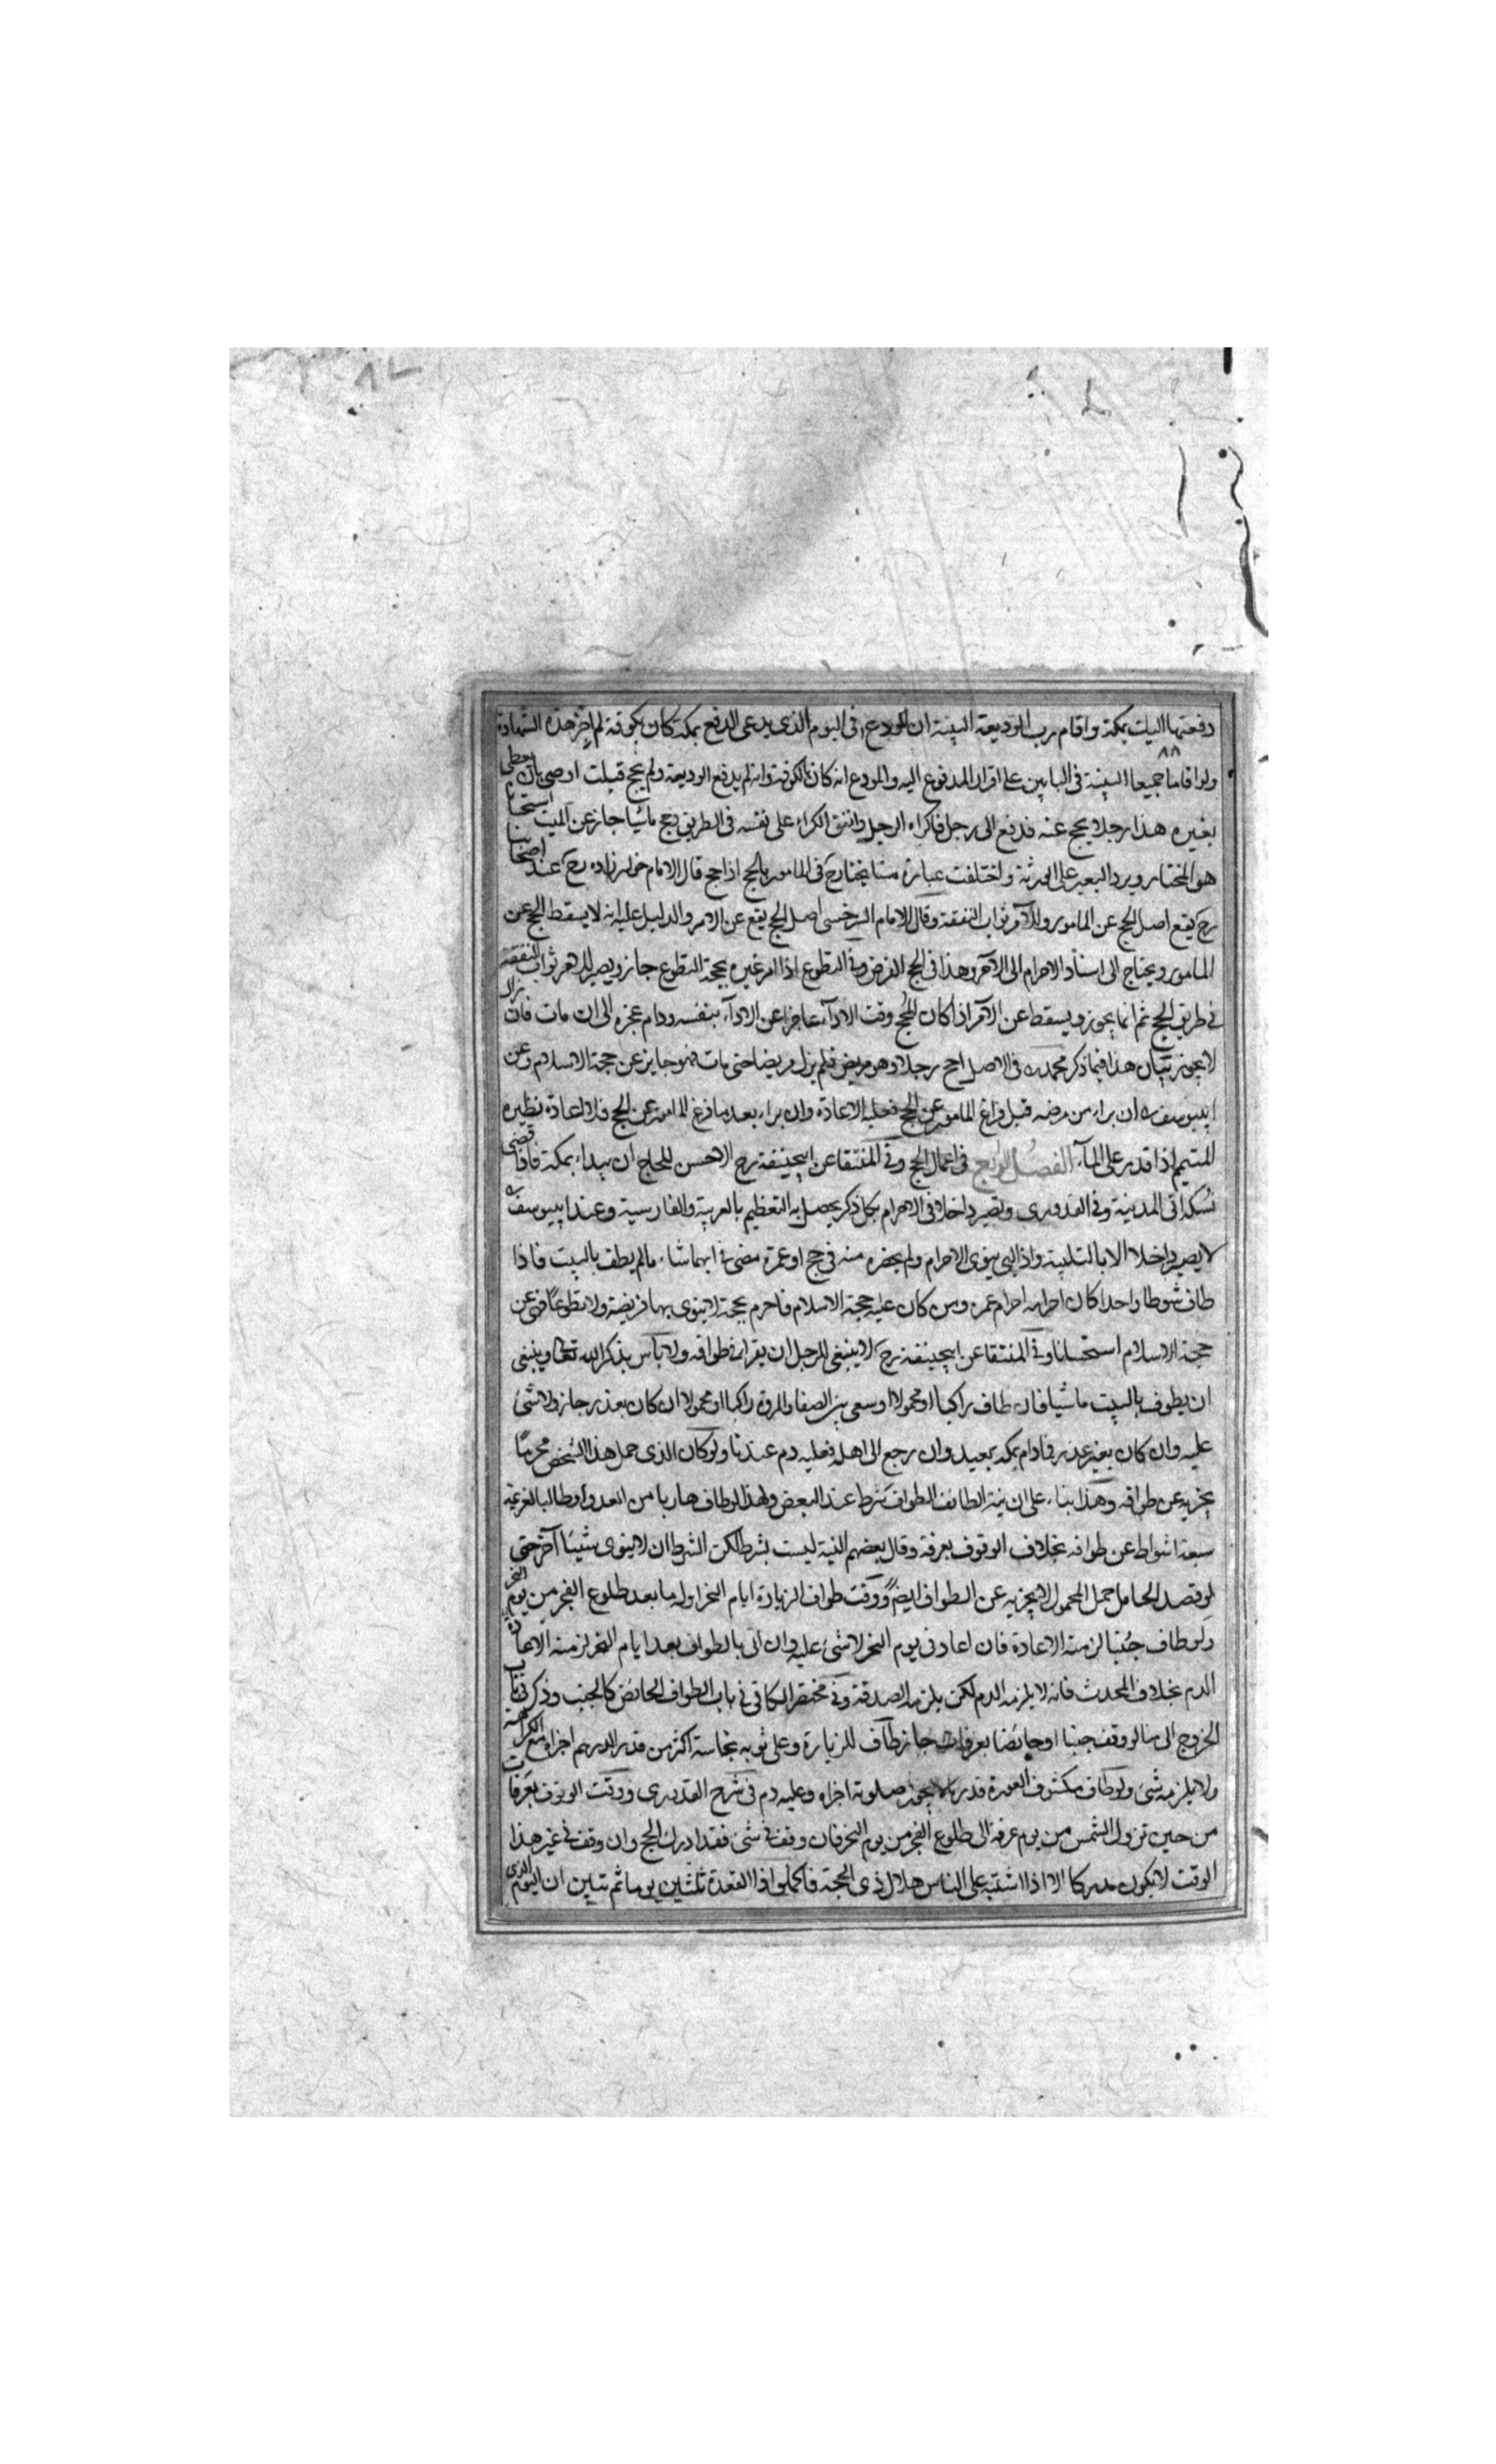 دفعتها اليك بمكة واقام رب الوديعة البينة ان المودع في اليوم الذي يدعي الدفع بمكة كان بكوفة لم يجز هذه الشهادة
ولو اقاما جميعا البينة في البابين على اقرار المدفوع اليه والمودع انه كان بالكوفة وانه لم يدفع الوديعة ولم يحج قبلت اوصى بان يعطى
بعيره هذا رجلا يحج عنه فدفع الى رجل فاكراه الرجل وانفق الكراء على نفسه في الطريق وحج ماشيا جاز عن الميت استحسانا
هو المختار ويرد البعير على الورثة واختلفت عبارة مشايخنا رح في المامور بالحج اذا حج قال الامام خواهرزاده رح عند اصحابنا
رح يقع اصل الحج عن المامور وللآمر ثواب النفقة وقال الامام السرخسي اصل الحج يقع عن الآمر والدليل عليه انه لا يسقط الحج عن
المامور ويحتاج الى اسناد الاحرام الى الآمر وهذا في الحج الفرض وفي التطوع اذا امر غيره بحجة التطوع جاز ويصير للآمر ثواب النفقة
في طريق الحج ثم انما يجوز ويسقط عن الآمر اذا كان للحج وقت الاداء عاجزا عن الاداء بنفسه ودام عجزه الى ان مات فان زال
لا يجوز بيان هذا فيما ذكر محمد رح في الاصل احج رجلا وهو مريض فلم يزل مريضا حتى مات فهو جايز عن حجة الاسلام وعن
ابي يوسف رح ان براء من مرضه قبل فراغ المامور عن الحج فعليه الاعادة وان براء بعد ما فرغ المامور عن الحج فلا اعادة نظيره
المتيمم اذا قدر على الماء الفصل الرابع في اعمال الحج وفي المنتقا عن ابي حنيفة رح الاحسن للحاج ان يبداء بمكة فاذا قضى
نسكه اتى المدينة وفي القدوري ويصير داخلا في الاحرام بكل ذكر يحصل به التعظيم بالعربية والفارسية وعند ابي يوسف رح
لا يصير داخلا الا بالتلبية واذا لبى ينوي الاحرام ولم يحضره منه في حج او عمرة مضى في ايهما شاء ما لم يطف بالبيت فاذا
طاف شوطا واحدا كان احرامه احرام عمرة ومن كان عليه حجة الاسلام فاحرم بحجة لا ينوي بها فريضة ولا تطوعا فهي عن
حجة الاسلام استحسانا وفي المنتقا عن ابي حنيفة رح لا ينبغي للرجل ان يقرا في طوافه ولا باس بذكر الله تعالى وينبغي
ان يطوف بالبيت ماشيا فان طاف راكبا او محمولا او سعى بين الصفا والمروة راكبا او محمولا ان كان بعذر جاز ولا شئ
عليه وان كان بغير عذر فما دام بمكة يعيد وان رجع الى اهله فعليه دم عندنا ولو كان الذي حمل هذا الشخص محرما
يجزيه عن طوافه وهكذا بناء على ان نية الطائف الطواف شرط عند البعض ولهذا لو طاف هاربا من العدو او طالبا لغريمه
سبعة اشواط عن طوافه بخلاف الوقوف بعرفة وقال بعضهم النية ليست بشرط لكن الشرط ان لا ينوي شيئا آخر حتى
لو قصد الحامل حمل المحمول لا يجزيه عن الطواف ايضا ووقت طواف الزيارة ايام النحر اوله ما بعد طلوع الفجر من يوم النحر
ولو طاف جنبا لزمته الاعادة فان اعاد في يوم النحر لا شئ عليه وان اتى بالطواف بعد ايام النحر لزمته الاعادة
الدم بخلاف المحدث فانه لا يلزمه الدم لكن يلزمه الصدقة وفي مختصر الكافي في باب الطواف الحائض كالجنب وذكر في باب
الخروج الى منا لو وقف جنبا او حايضا بعرفات جاز طاف للزيارة وعلى ثوبه نجاسة اكثر من قدر الدرهم اجزاه مع الكراهة
ولا يلزمه شئ ولو طاف مكشوف العورة قدر ما لا يجوز صلوته اجزاه وعليه دم في شرح القدوري ووقت الوقوف بعرفات
من حين تزول الشمس من يوم عرفة الى طلوع الفجر من يوم النحر فان وقف في شئ فقد ادرك الحج وان وقف في غير هذا
الوقت لا يكون مدركا الا اذا اشتبه على الناس هلال ذي الحجة فاكملوا ذا القعدة ثلثين يوما ثم تبين ان اليوم الذي